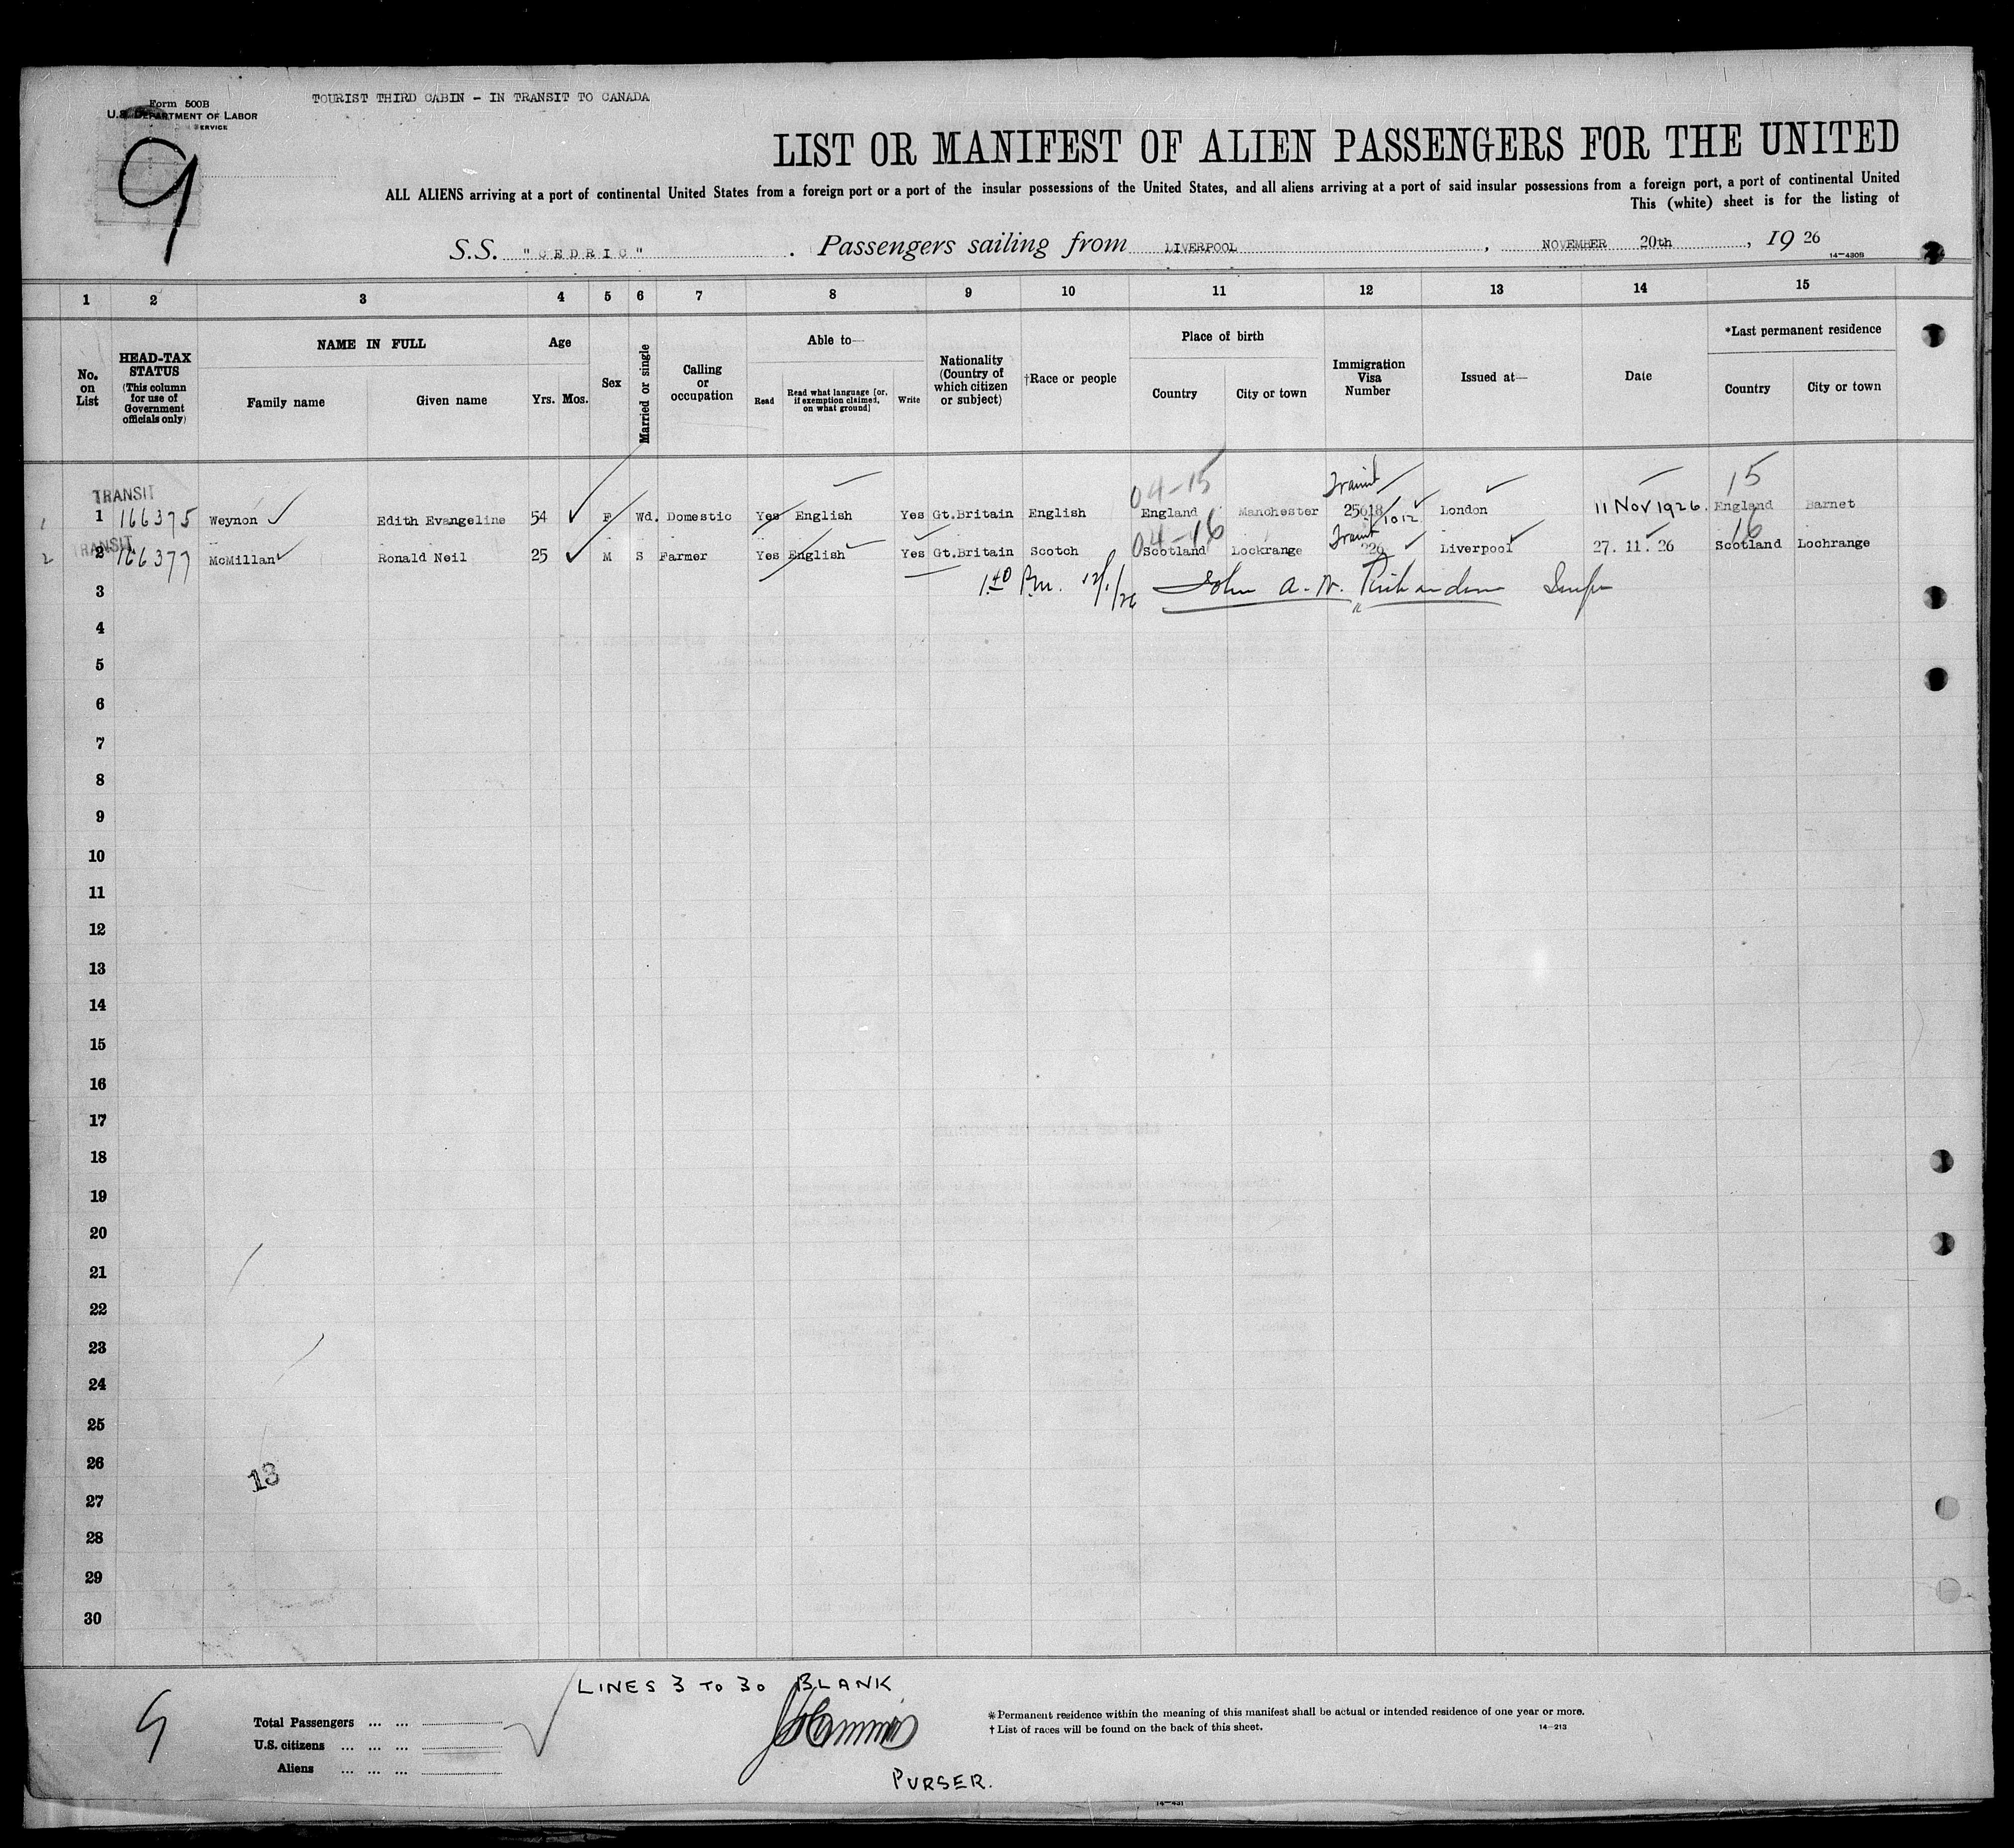 Form 500B
TOURIST THIRD CABIN - IN TRANSIT TO CANADA
U.S. DEPARTMENT OF LABOR
SERVICE
9
LIST OR MANIFEST OF ALIEN PASSENGERS FOR THE UNITED
ALL ALIENS arriving at a port of continental United States from a foreign port or a port of the insular possessions of the United States, and all aliens arriving at a port of said insular possessions from a foreign port, a port of continental United
This (white) sheet is for the listing of
S.S. "CEDRIC" . Passengers sailing from LIVERPOOL , NOVEMBER 20th , 19 26
14—430B
1 2 3 4 5 6 7 8 9 10 11 12 13 14 15
No. on List
HEAD-TAX STATUS (This column for use of Government officials only)
NAME IN FULL
Family name Given name
Age
Yrs. Mos.
Sex
Married or single
Calling or occupation
Able to—
Read Read what language [or, if exemption claimed, on what ground] Write
Nationality (Country of which citizen or subject)
†Race or people
Place of birth
Country City or town
Immigration Visa Number
Issued at—
Date
*Last permanent residence
Country City or town
TRANSIT 04-15 Transit 15
1 1 166375 Weynon Edith Evangeline 54 F Wd. Domestic Yes English Yes Gt.Britain English England Manchester 25618/1012 London 11 Nov 1926. England Barnet
TRANSIT 04-16 Transit 16
2 2 166377 McMillan Ronald Neil 25 M S Farmer Yes English Yes Gt.Britain Scotch Scotland Lockrange 226 Liverpool 27. 11. 26 Scotland Lochrange
3 1.40 P.m. 12/1/26 John A. W. Richardson
4
5
6
7
8
9
10
11
12
13
14
15
16
17
18
19
20
21
22
23
24
25
26
13
27
28
29
30
LINES 3 TO 30 BLANK
9
Total Passengers ... ...
U.S. citizens ... ... ...
Aliens ... ... ...
*Permanent residence within the meaning of this manifest shall be actual or intended residence of one year or more.
†List of races will be found on the back of this sheet.
14—213
PURSER.
14—431